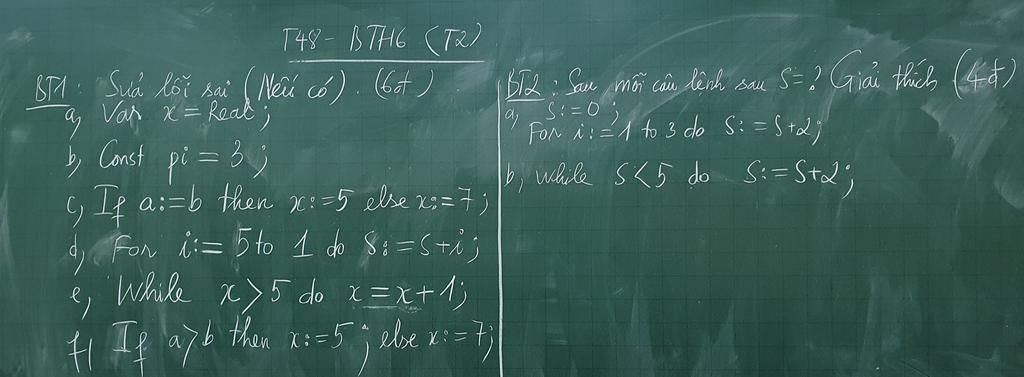 T48 - BTH6 (T2)
BT1: Sửa lỗi sai (Nếu có). (6đ)
a, Var x = Real;
b, Const pi = 3;
c, If a:=b then x:=5 else x:=7;
d, For i:= 5 to 1 do S:=S+i;
e, While x>5 do x=x+1;
f, If a>b then x:=5; else x:=7;
BT2: Sau mỗi câu lệnh sau S=? Giải thích (4đ)
a, S:=0;
For i:=1 to 3 do S:=S+2;
b, While S<5 do S:=S+2;